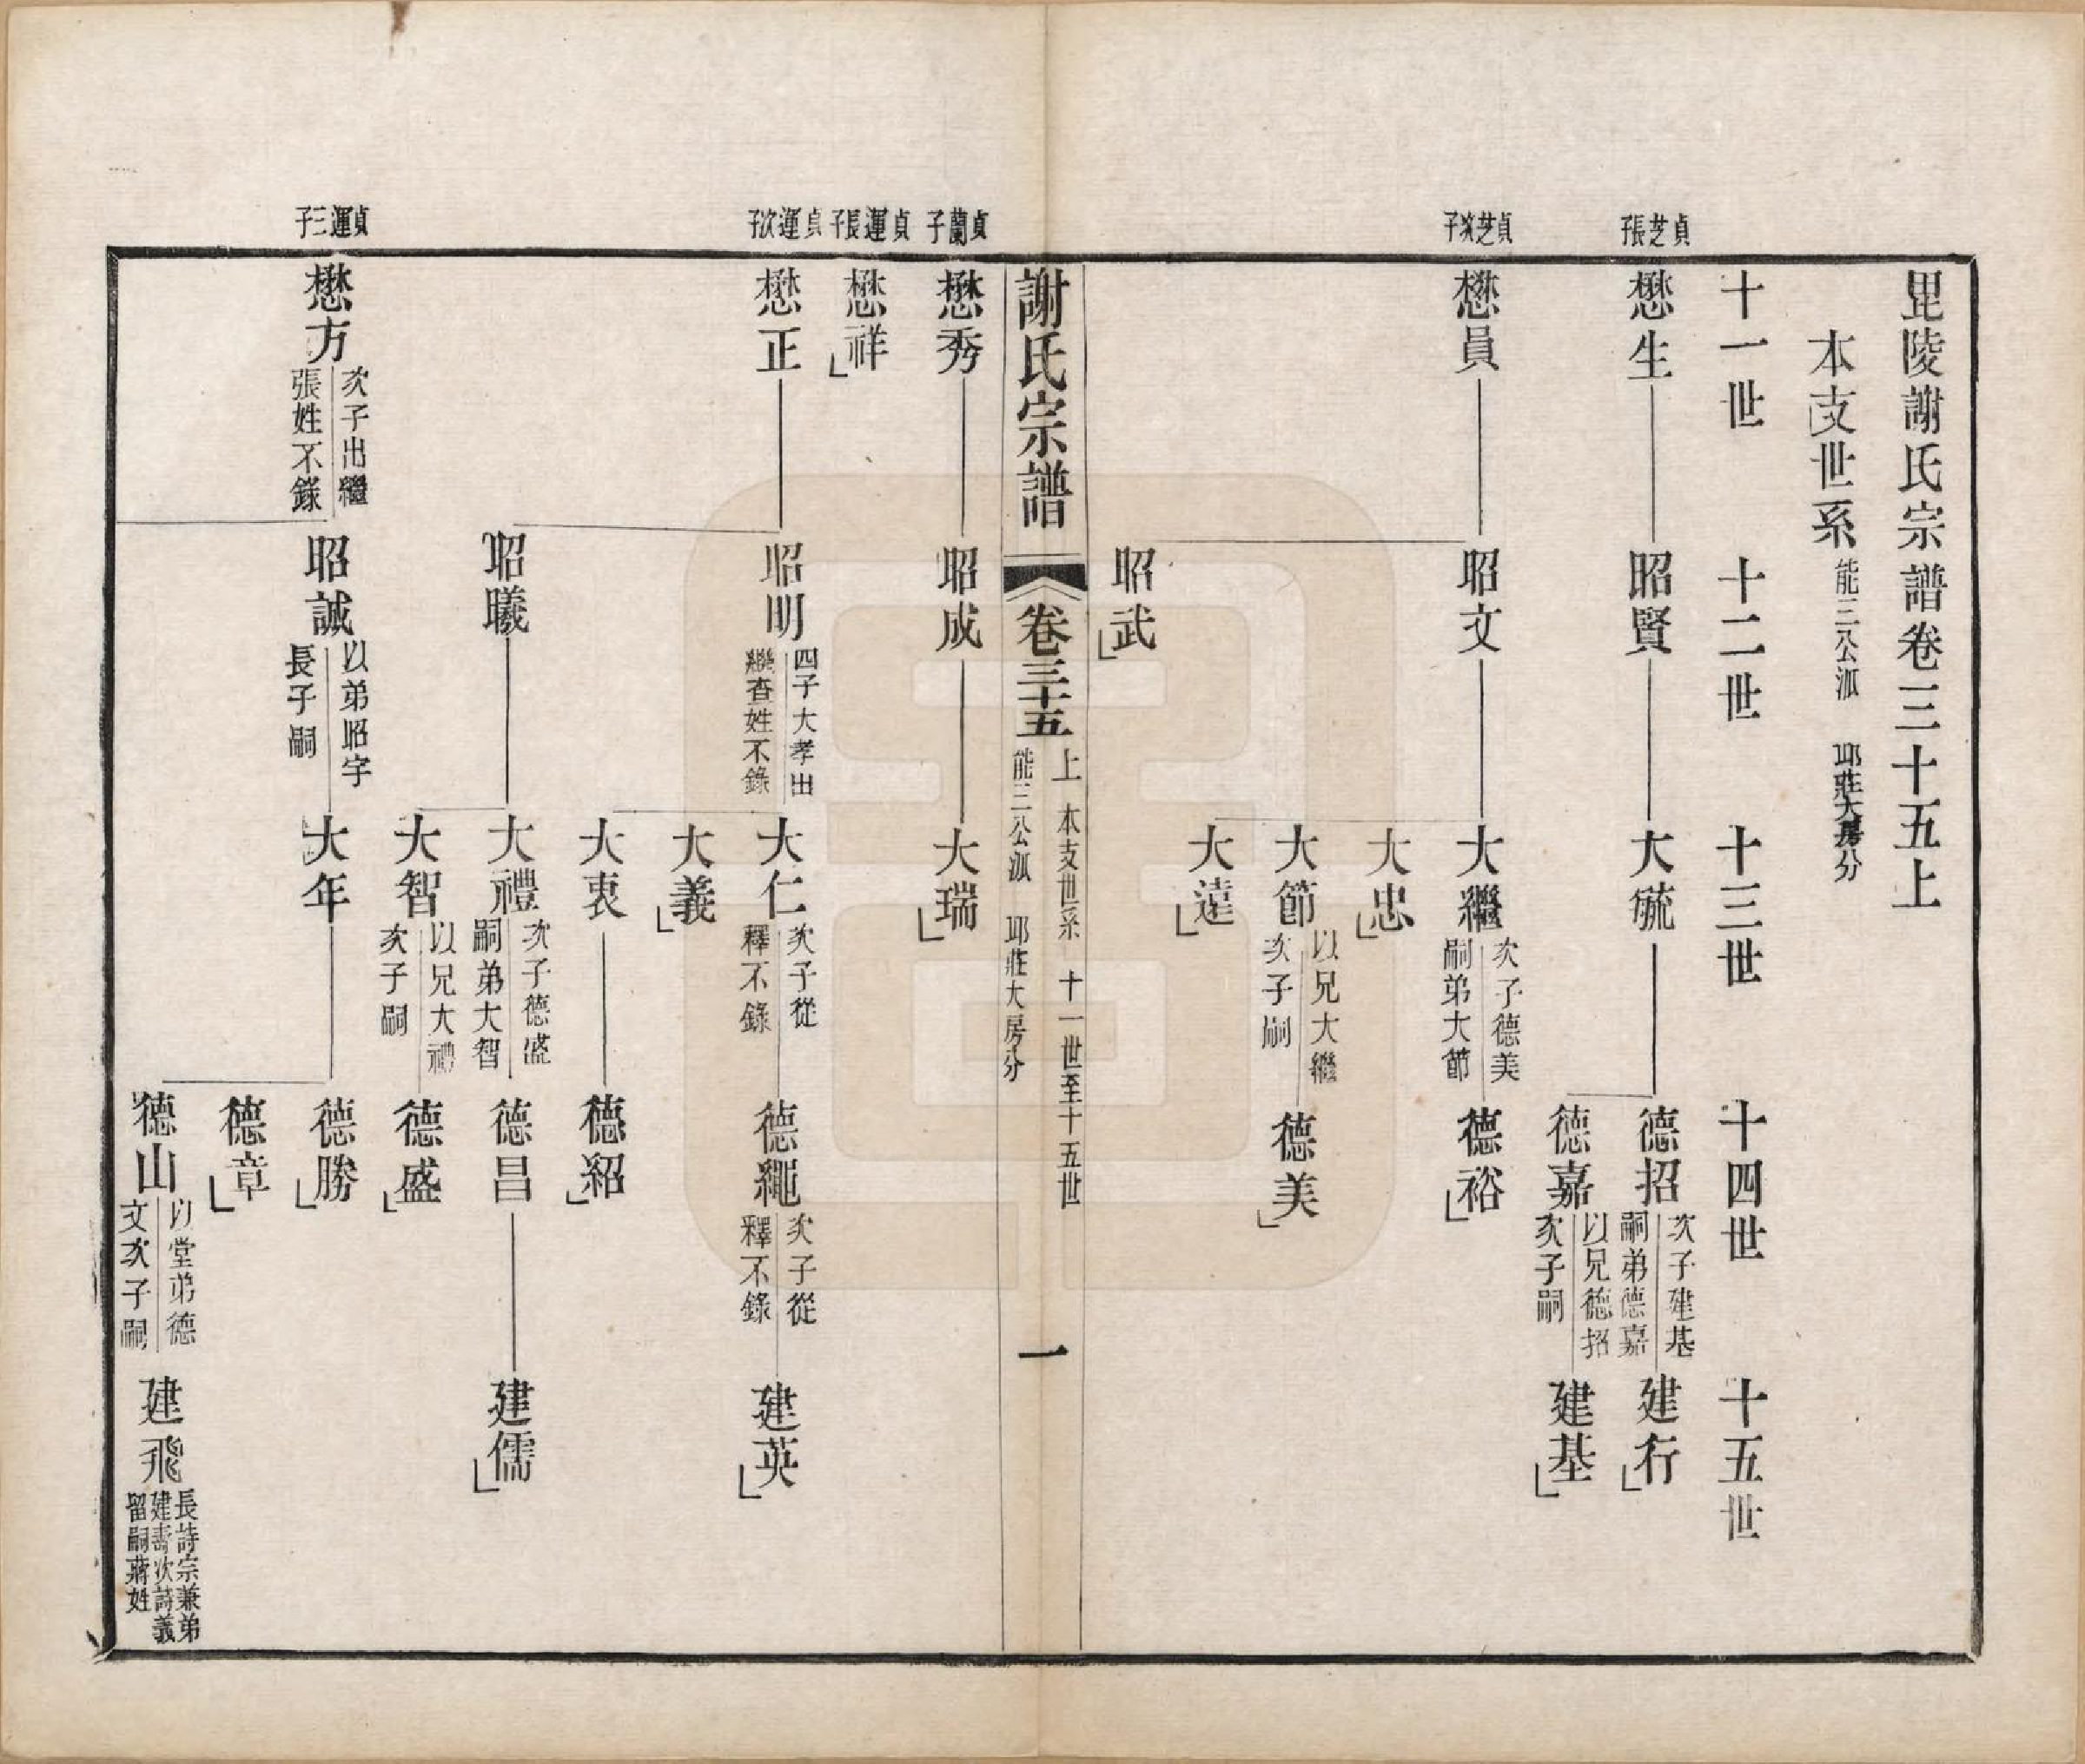 毘陵謝氏宗譜卷三十五上
本支世系 能三公派 邱莊大房分
十一世
十二世
十三世
十四世
十五世
貞芝長子
懋生
昭賢
大毓
德招 次子建基嗣弟德嘉
建行
德嘉 以兄德招次子嗣
建基
貞芝次子
懋員
昭文
大繼 次子德美嗣弟大節
德裕
大忠
大節 以兄大繼次子嗣
德美
大遠
昭武
謝氏宗譜
卷三十五 上 本支世系 十一世至十五世
能三公派 邱莊大房分
一
貞蘭子
懋秀
昭成
大瑞
貞運長子
懋祥
貞運次子
懋正
昭明 四子大孝出繼查姓不錄
大仁 次子從釋不錄
德繩 次子從釋不錄
建英
大義
大衷
德紹
昭曦
大禮 次子德盛嗣弟大智
德昌
建儒
大智 以兄大禮次子嗣
德盛
貞運三子
懋方 次子出繼張姓不錄
昭誠 以弟昭字長子嗣
大年
德勝
德章
德山 以堂弟德文次子嗣
建飛 長詩宗兼弟建壽次詩義留嗣蔣姓